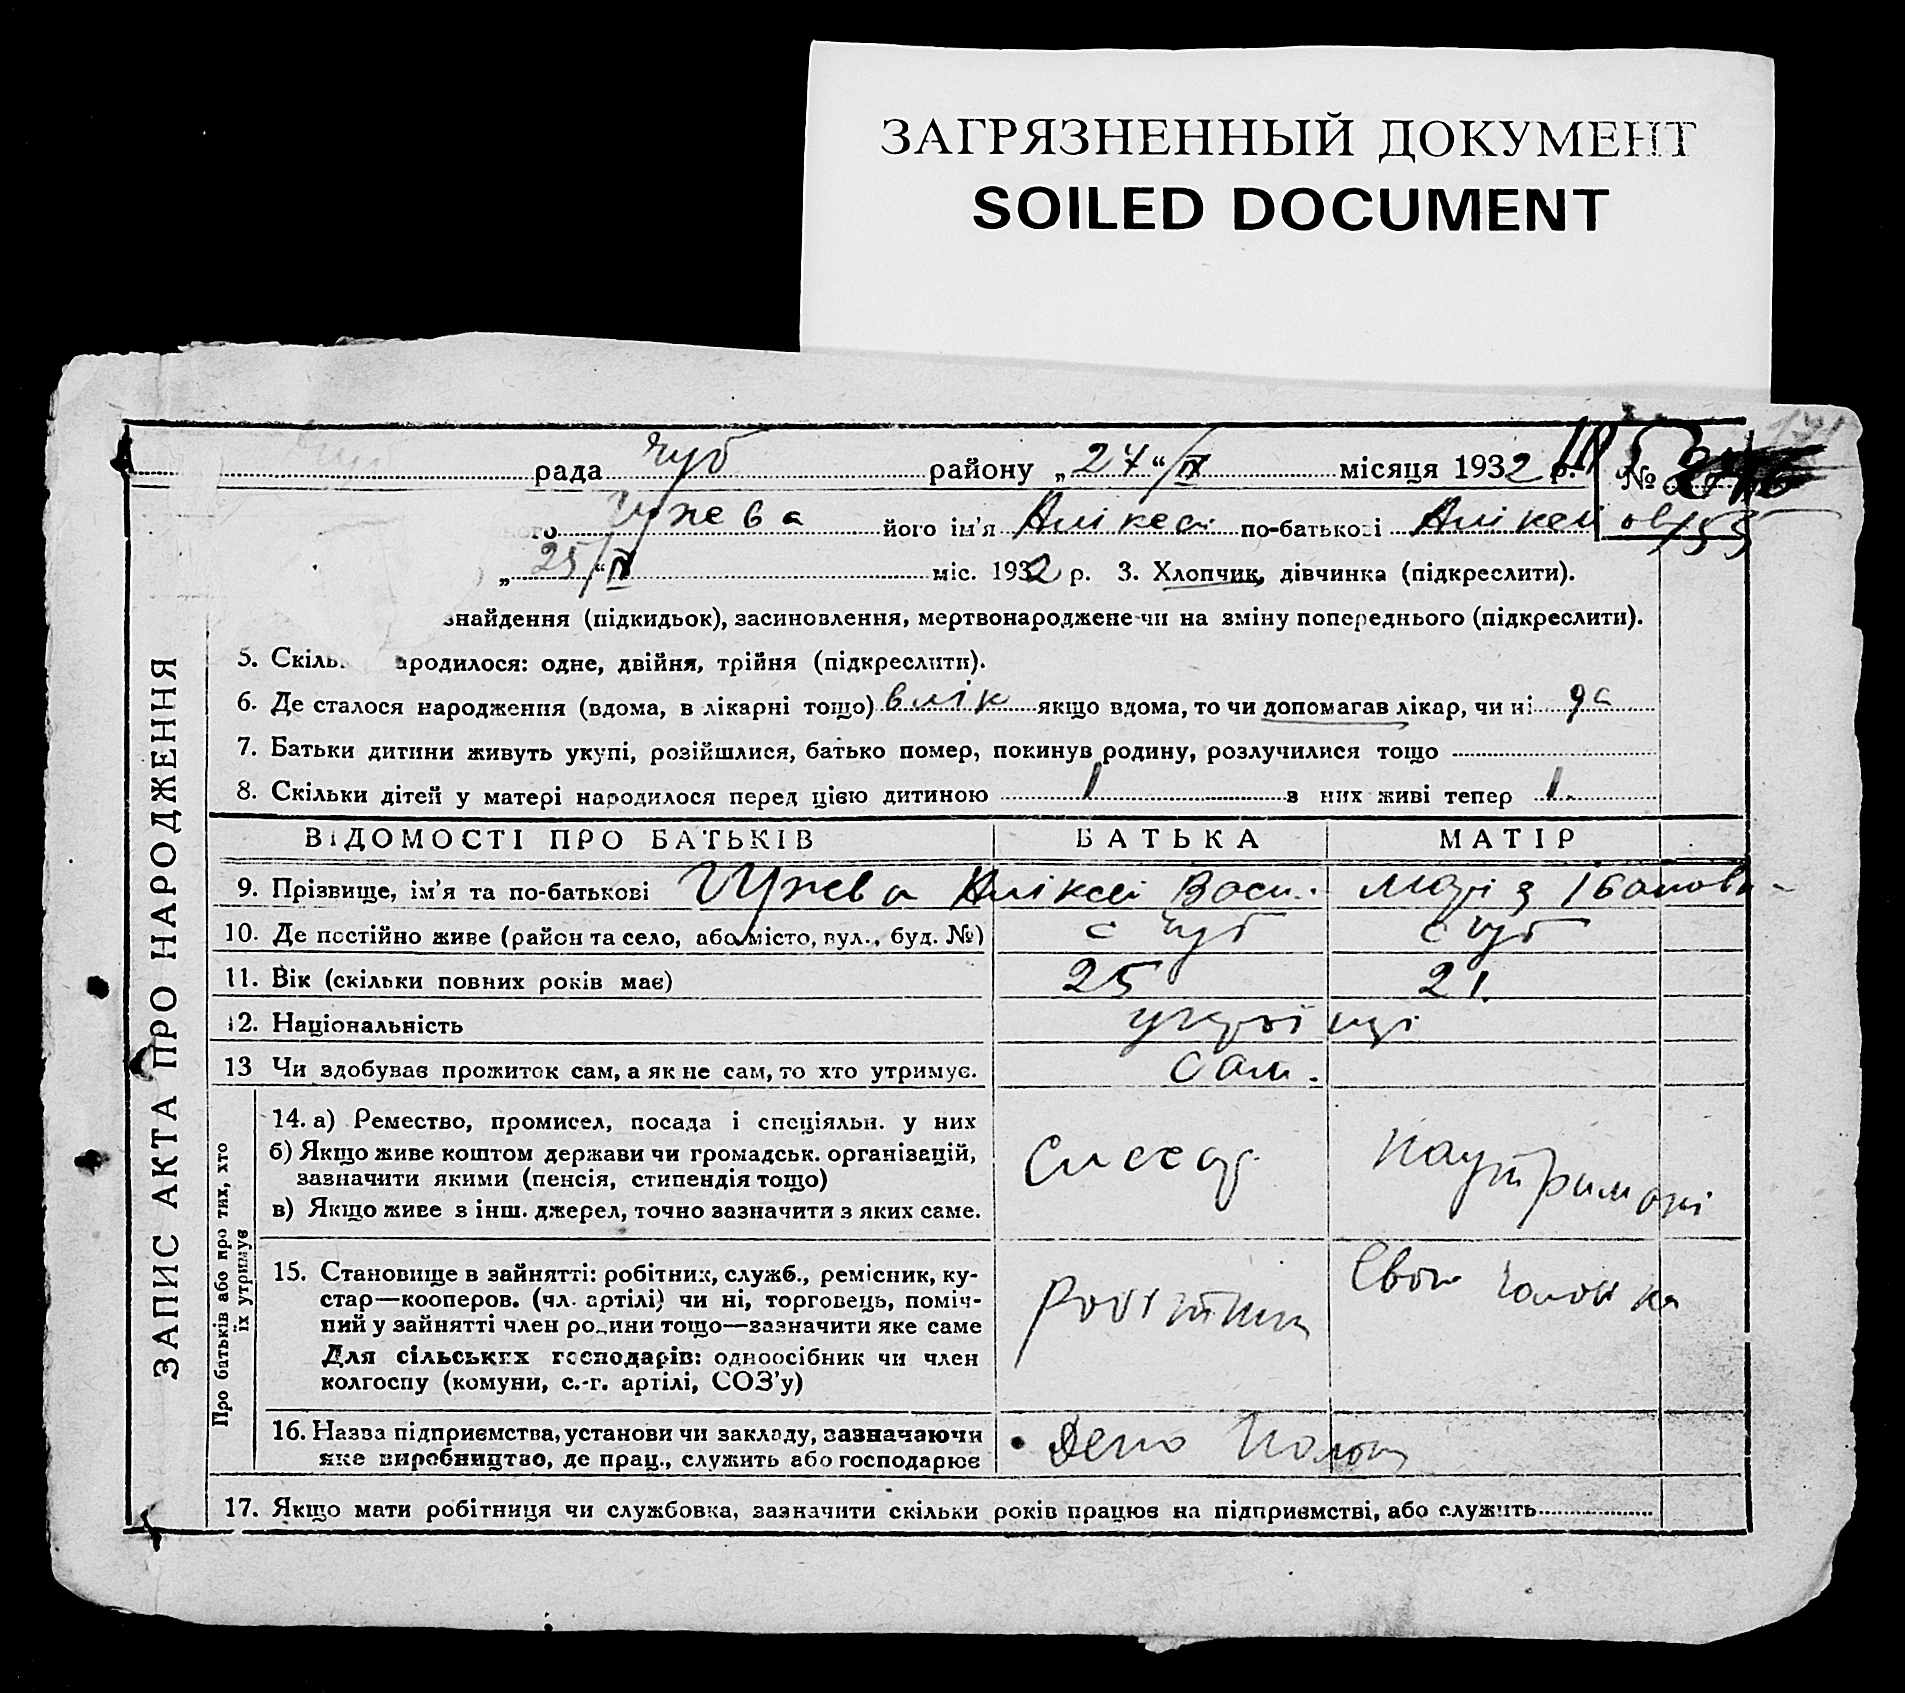 ЗАГРЯЗНЕННЫЙ ДОКУМЕНТ
SOILED DOCUMENT
рада Чуб району „24“/IV місяця 1932 р. №
ного Чужева його ім'я Аліксєі по-батькові Аліксєіов
155
„25“/IV міс. 1932 р. 3. Хлопчик, дівчинка (підкреслити).
знайдення (підкидьок), засиновлення, мертвонароджене чи на зміну попереднього (підкреслити).
5. Скіль народилося: одне, двійня, трійня (підкреслити).
6. Де сталося народження (вдома, в лікарні тощо) в лік якщо вдома, то чи допомагав лікар, чи ні да
7. Батьки дитини живуть укупі, розійшлися, батько помер, покинув родину, розлучилися тощо
8. Скільки дітей у матері народилося перед цією дитиною 1 з них живі тепер 1.
ЗАПИС АКТА ПРО НАРОДЖЕННЯ
ВІДОМОСТІ ПРО БАТЬКІВ БАТЬКА МАТІР
9. Прізвище, ім'я та по-батькові Чужева Аліксєі Васи.
10. Де постійно живе (район та село, або місто, вул., буд. №) с Чуб с Чуб
11. Вік (скільки повних років має) 25 21.
12. Національність українці
13 Чи здобував прожиток сам, а як не сам, то хто утримує. Сам.
Про батьків або про тих, хто
їх утримує
14. а) Ремество, промисел, посада і спеціяльн. у них
б) Якщо живе коштом держави чи громадськ. організацій,
зазначити якими (пенсія, стипендія тощо)
в) Якщо живе з інш. джерел, точно зазначити з яких саме.
Слесар
На утримані
15. Становище в зайнятті: робітник, служб., ремісник, ку-
стар—кооперов. (чл. артілі) чи ні, торговець, поміч-
ний у зайнятті член родини тощо—зазначити яке саме
Для сільських господарів: одноосібник чи член
колгоспу (комуни, с.-г. артілі, СОЗ'у)
робітник
Свого чоловіка
16. Назва підприємства, установи чи закладу, зазначаючи
яке виробництво, де прац., служить або господарює
Депо
17. Якщо мати робітниця чи службовка, зазначити скільки років працює на підприємстві, або служить